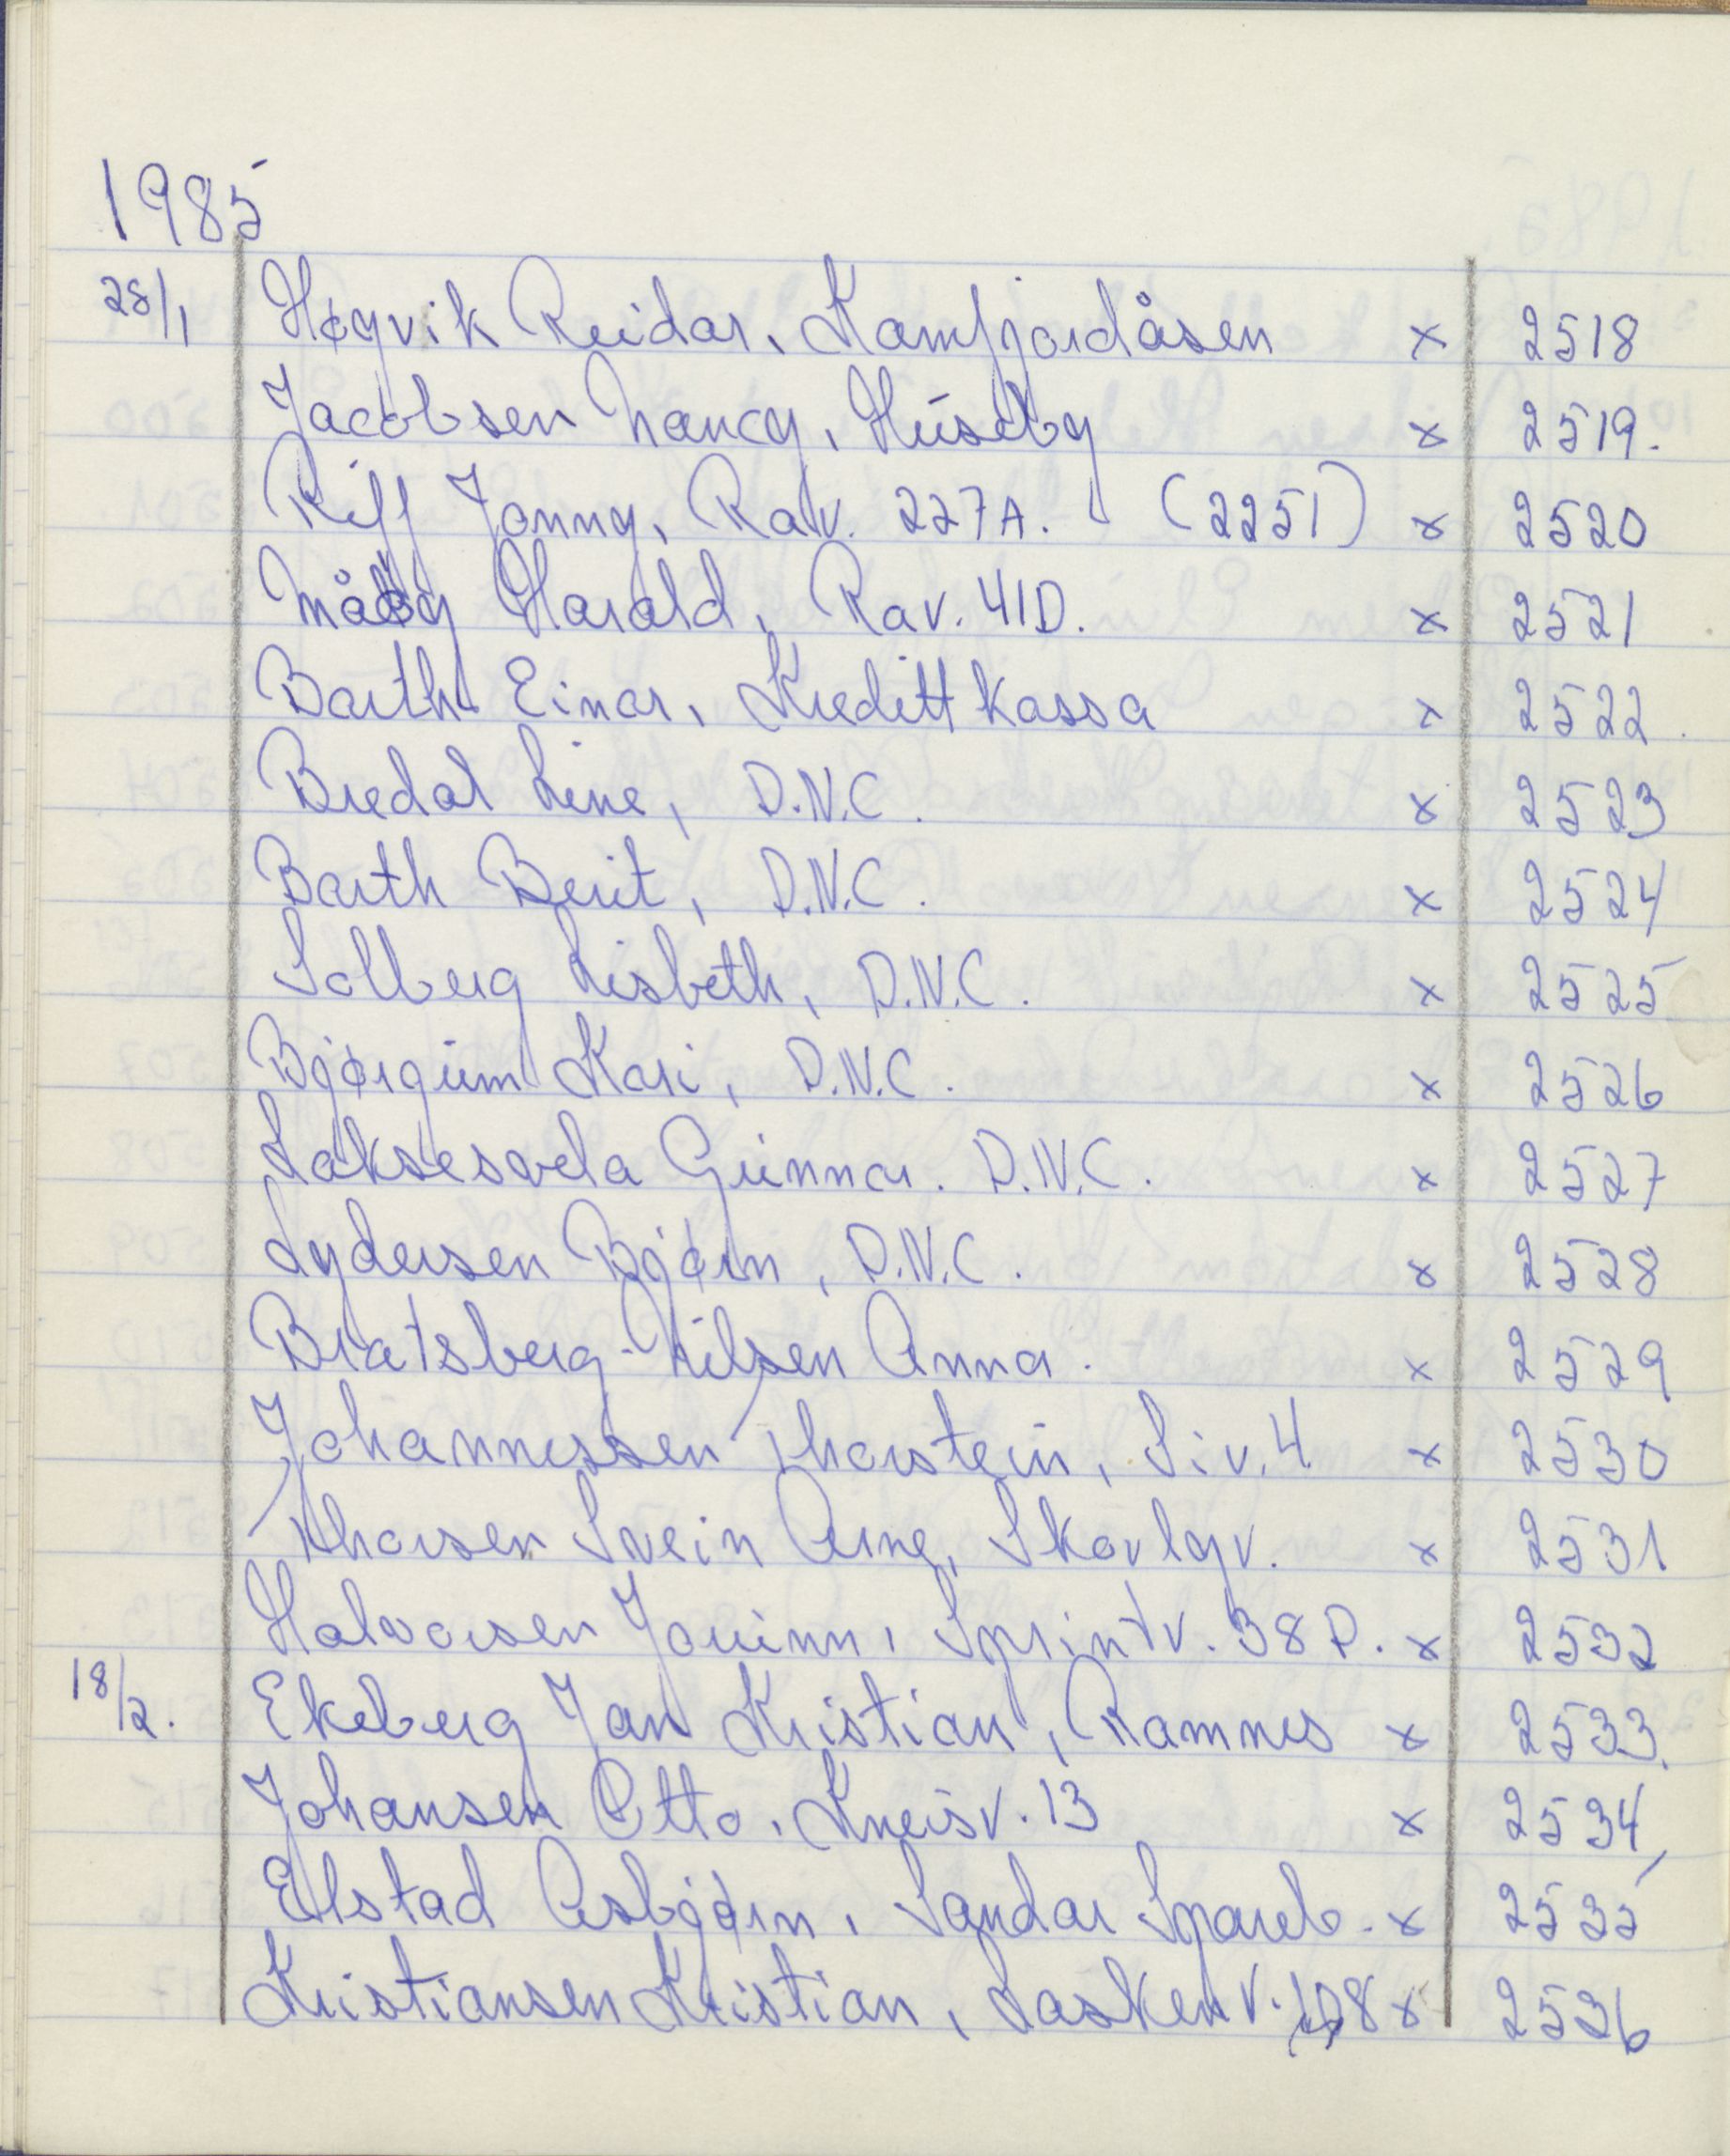 1985
28/1 Høgvik Reidar, Kamfjordåsen x 2518
Jacobsen Nancy, Huseby x 2519.
Riff Jonny, Rav. 227A. (2251) x 2520
Måløy Harald, Rav. 41D. x 2521
Barth Einar, Kredittkassa x 2522
Bredal Line, D.N.C. x 2523
Barth Berit, D.N.C. x 2524
Solberg Lisbeth, D.N.C. x 2525
Bjørgum Kari, D.N.C. x 2526
Laksesvela Gunnar. D.N.C. x 2527
Lydersen Bjørn, D.N.C. x 2528
Bratsberg-Nilsen Anna. x 2529
Johannessen Thorstein, Siv. 4 x 2530
Thorsen Svein Arne, Skovlyv. x 2531
Halvorsen Jorunn, Sprintv. 38D. x 2532
18/2. Ekeberg Jan Kristian, Ramnes x 2533.
Johansen Otto, Kneisv. 13 x 2534
Elstad Asbjørn, Sandar Spareb. x 2535
Kristiansen Kristian, Laskenv. 8 x 2536